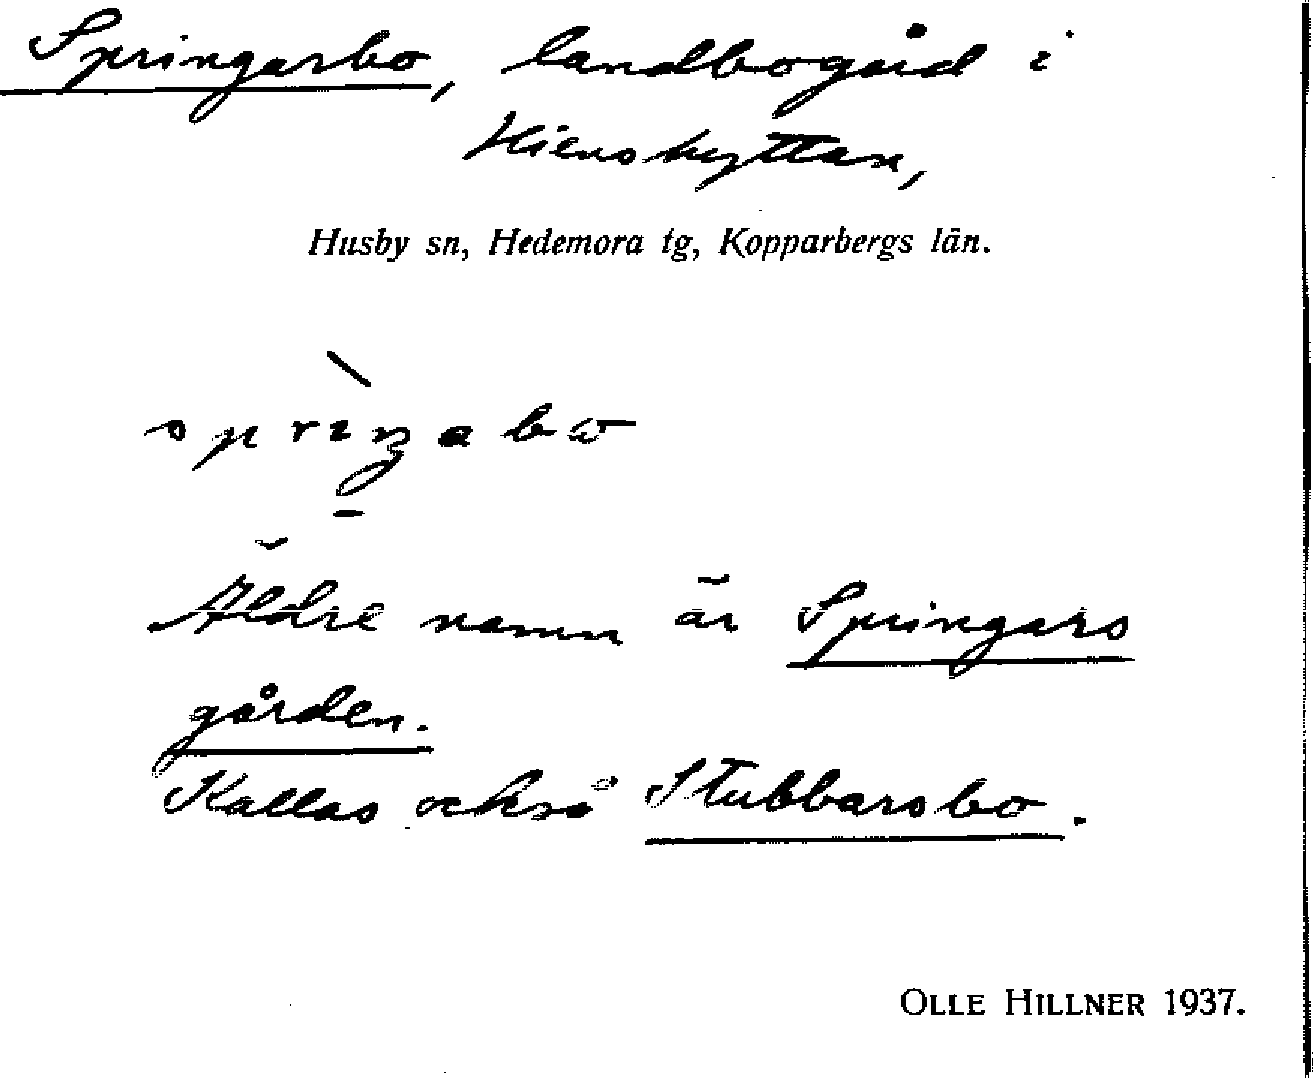 Springarbo, landbogård i
Hienshyttan,
Husby sn, Hedemora tg, Kopparbergs län.
Äldre namn är Springars
gården.
Kallas också Stubbarsbo.
OLLE HILLNER 1937.